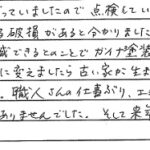 っていましたので点検してい
る破損があると分かりました
戒できるとのことでガイナ塗装
に変えましたら古い家が生ま
。職人さんの仕事ぶり、工
ありませんでした。そして来年